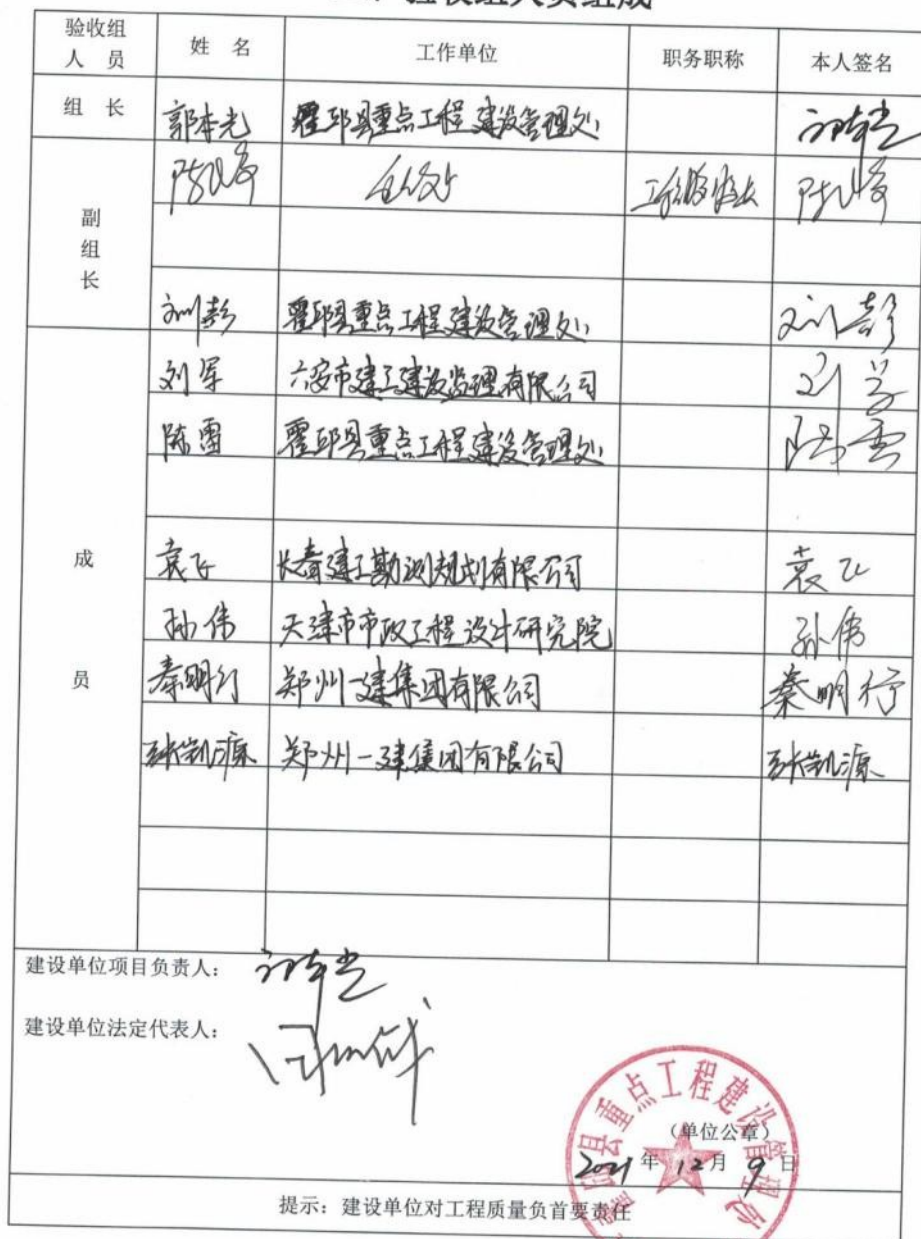 验收组人员组成
验收组人员 姓 名 工作单位 职务职称 本人签名
组 长 郭本光 霍邱县重点工程建设管理处
副组长
刘彭 霍邱县重点工程建设管理处 刘彭
成员
刘军 六安市建工建设监理有限公司 刘军
陈雷 霍邱县重点工程建设管理处 陈雷
袁飞 长春建工勘测规划有限公司 袁飞
孙伟 天津市市政工程设计研究院 孙伟
秦明行 郑州一建集团有限公司 秦明行
张凯源 郑州一建集团有限公司 张凯源
建设单位项目负责人:
建设单位法定代表人:
霍邱县重点工程建设管理处
(单位公章)
2021年12月9日
提示:建设单位对工程质量负首要责任